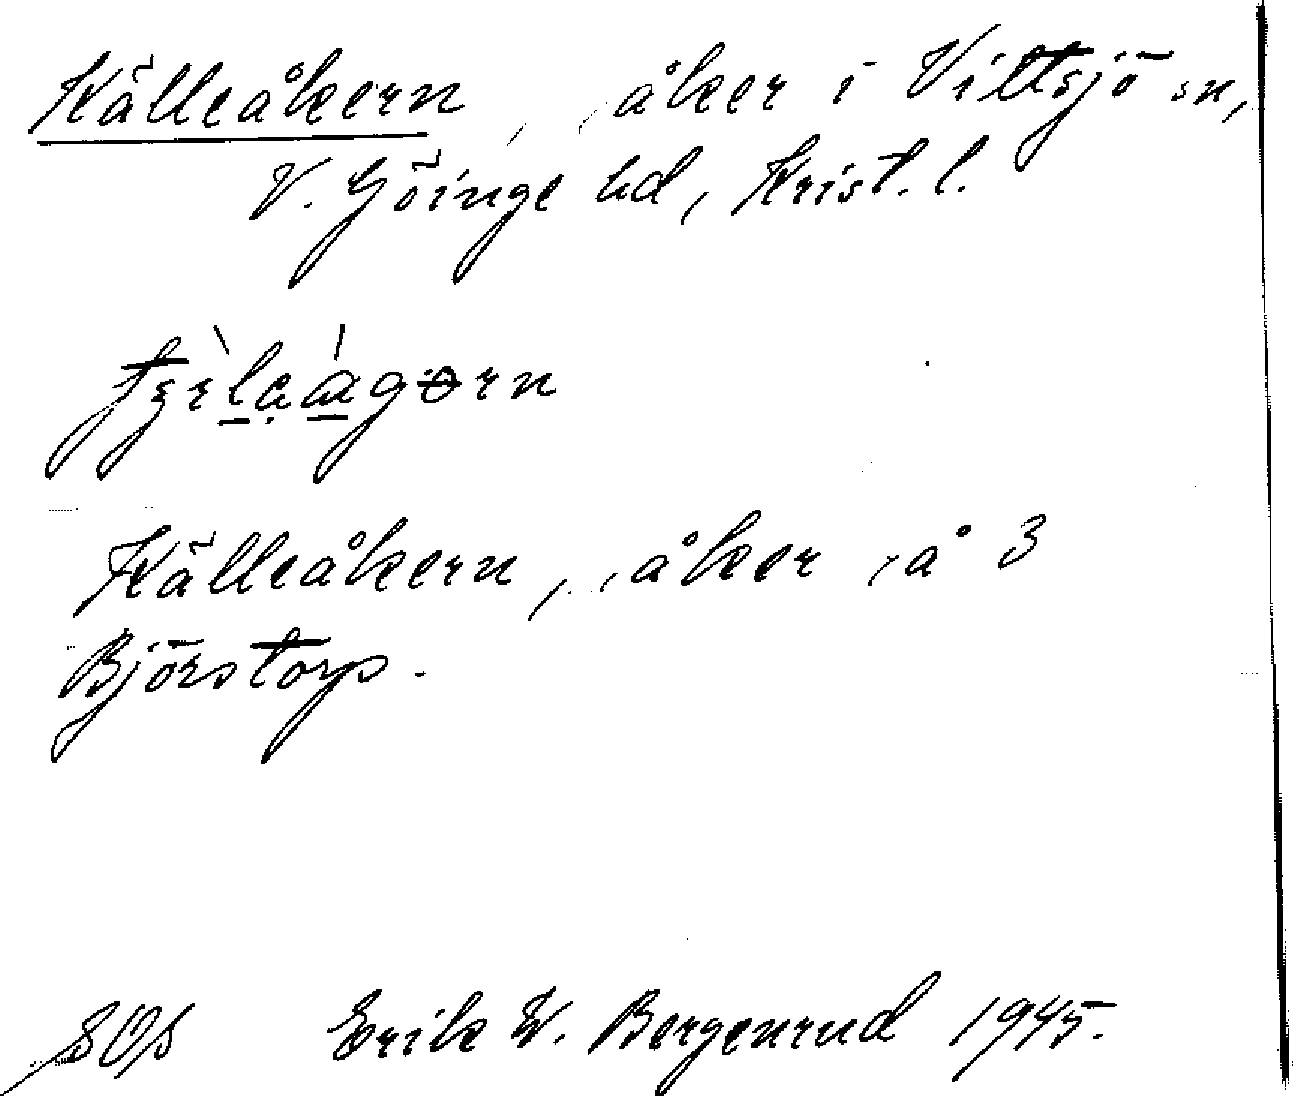 Källeåkern, åker i Vittsjö sn,
V. Göinge hd, Krist. l.
Källeåkern, åker på 3
Björstorp.
Erik W. Bergenrud 1945.